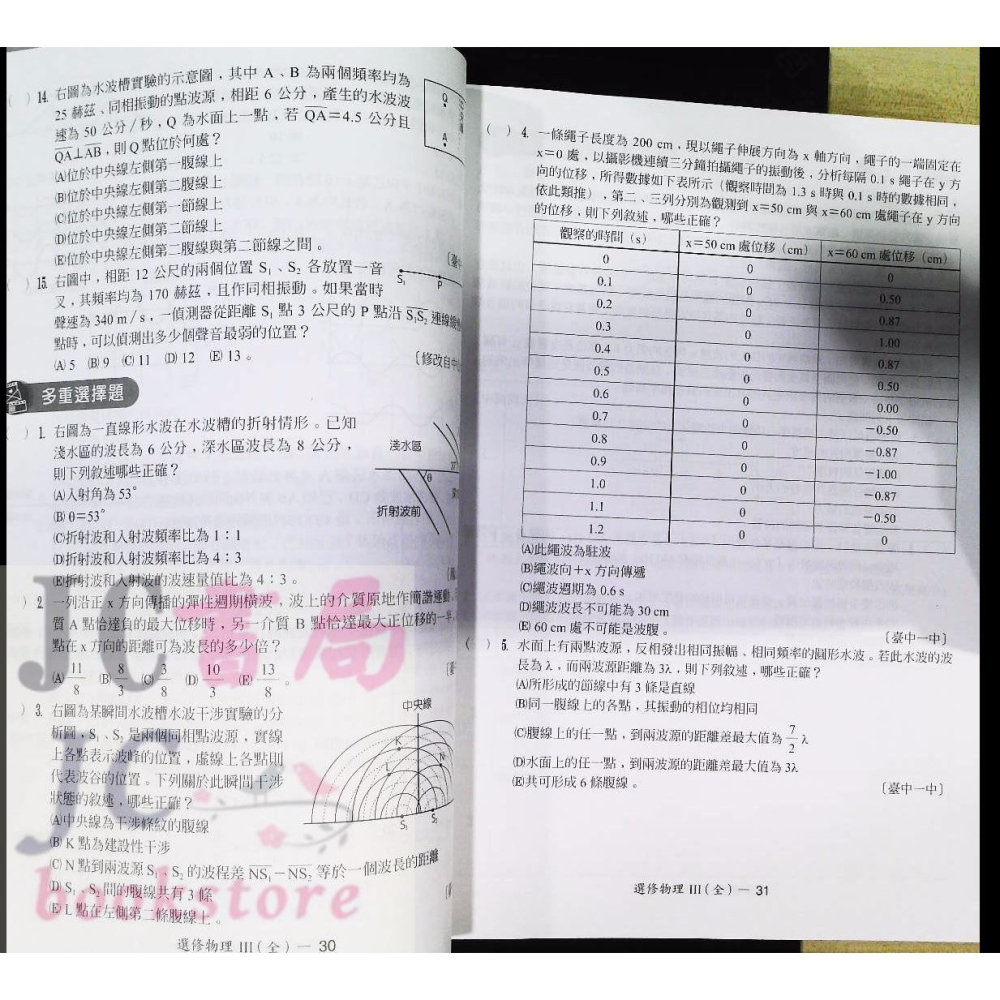 ( ) 14. 右圖為水波槽實驗的示意圖，其中 A、B 為兩個頻率均為
25 赫茲、同相振動的點波源，相距 6 公分，產生的水波波
速為 50 公分/秒，Q 為水面上一點，若 QA=4.5 公分且
QA⊥AB，則 Q 點位於何處？
(A)位於中央線左側第一腹線上
(B)位於中央線左側第二腹線上
(C)位於中央線左側第一節線上
(D)位於中央線左側第二節線上
(E)位於中央線左側第二腹線與第二節線之間。
Q
A
( ) 15. 右圖中，相距 12 公尺的兩個位置 S₁、S₂ 各放置一音
叉，其頻率均為 170 赫茲，且作同相振動。如果當時
聲速為 340 m/s，一偵測器從距離 S₁ 點 3 公尺的 P 點沿 S₁S₂ 連線
點時，可以偵測出多少個聲音最弱的位置？
(A) 5 (B) 9 (C) 11 (D) 12 (E) 13。
〔修改自中
S₁ P
多重選擇題
( ) 1. 右圖為一直線形水波在水波槽的折射情形。已知
淺水區的波長為 6 公分，深水區波長為 8 公分，
則下列敘述哪些正確？
(A)入射角為 53°
(B) θ=53°
(C)折射波和入射波頻率比為 1：1
(D)折射波和入射波頻率比為 4：3
(E)折射波和入射波的波速量值比為 4：3。
淺水區
θ
折射波前
) 2. 一列沿正 x 方向傳播的彈性週期橫波，波上的介質原地作簡諧運動
質 A 點恰達負的最大位移時，另一介質 B 點恰達最大正位移的一半
點在 x 方向的距離可為波長的多少倍？
(A) 11/8 (B) 8/3 (C) 3/8 (D) 10/3 (E) 13/8。
) 3. 右圖為某瞬間水波槽水波干涉實驗的分
析圖，S₁、S₂ 是兩個同相點波源，實線
上各點表示波峰的位置，虛線上各點則
代表波谷的位置。下列關於此瞬間干涉
狀態的敘述，哪些正確？
(A)中央線為干涉條紋的腹線
(B) K 點為建設性干涉
(C) N 點到兩波源 S₁、S₂ 的波程差 NS₁－NS₂ 等於一個波長的距離
(D) S₁、S₂ 間的腹線共有 3 條
(E) L 點在左側第二條腹線上。
中央線
K
L
N
S₁
S₂
JC書局
JC
bookstore
選修物理 III（全）— 30
( ) 4. 一條繩子長度為 200 cm，現以繩子伸展方向為 x 軸方向，繩子的一端固定在
x=0 處，以攝影機連續三分鐘拍攝繩子的振動後，分析每隔 0.1 s 繩子在 y 方
向的位移，所得數據如下表所示（觀察時間為 1.3 s 時與 0.1 s 時的數據相同，
依此類推），第二、三列分別為觀測到 x=50 cm 與 x=60 cm 處繩子在 y 方向
的位移，則下列敘述，哪些正確？
觀察的時間（s） x=50 cm 處位移（cm） x=60 cm 處位移（cm）
0 0 0
0.1 0 0.50
0.2 0 0.87
0.3 0 1.00
0.4 0 0.87
0.5 0 0.50
0.6 0 0.00
0.7 0 －0.50
0.8 0 －0.87
0.9 0 －1.00
1.0 0 －0.87
1.1 0 －0.50
1.2 0 0
(A)此繩波為駐波
(B)繩波向＋x 方向傳遞
(C)繩波週期為 0.6 s
(D)繩波波長不可能為 30 cm
(E) 60 cm 處不可能是波腹。
〔臺中一中〕
( ) 5. 水面上有兩點波源，反相發出相同振幅、相同頻率的圓形水波。若此水波的波
長為 λ，而兩波源距離為 3λ，則下列敘述，哪些正確？
(A)所形成的節線中有 3 條是直線
(B)同一腹線上的各點，其振動的相位均相同
(C)腹線上的任一點，到兩波源的距離差最大值為 7/2 λ
(D)水面上的任一點，到兩波源的距離差最大值為 3λ
(E)共可形成 6 條腹線。
〔臺中一中〕
選修物理 III（全）— 31